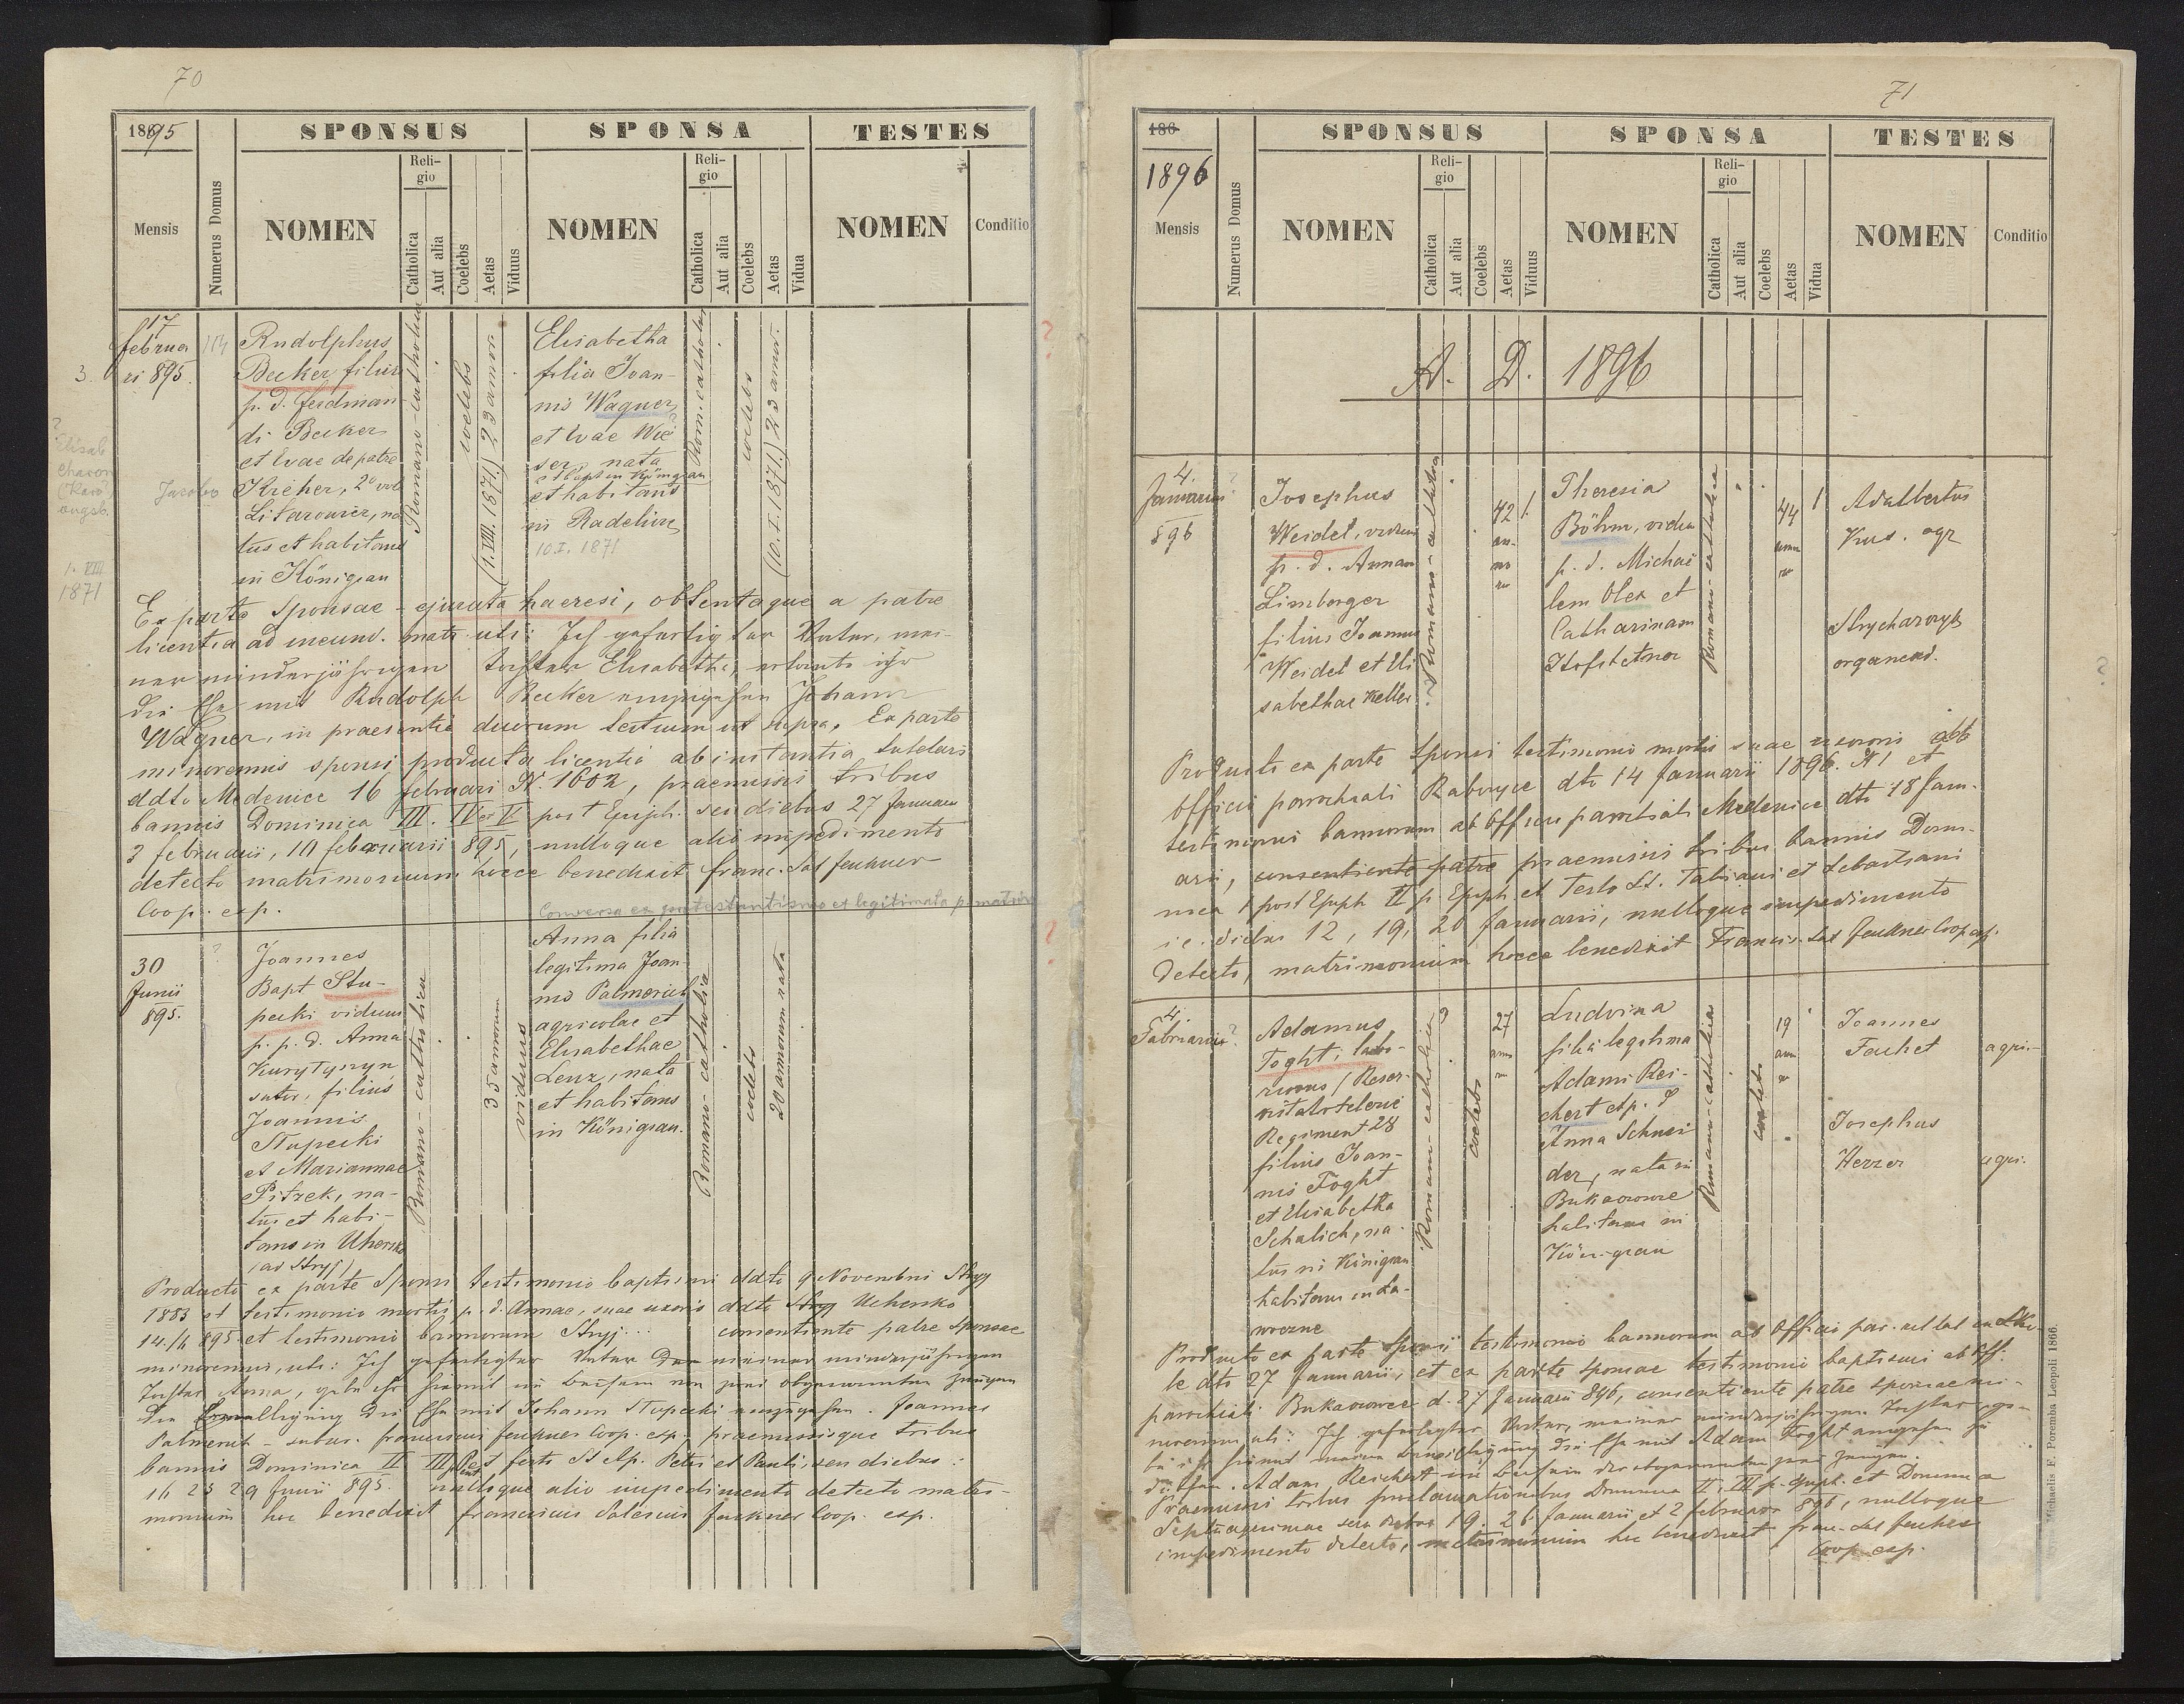 70
1895
SPONSUS
SPONSA
TESTES
Mensis
Numerus Domus
NOMEN
Religio
Catholica
Aut alia
Coelebs
Aetas
Viduus
NOMEN
Religio
Catholica
Aut alia
Coelebs
Aetas
Vidua
NOMEN
Conditio
3.
17
februa
ri 895.
114
Rudolphus
Becker, filius
p. d. ferdinan-
di Becker
et Evae de patre
Jacobo
Kreher, 2º voto
natus et habitans
in Königsau
Romano catholica
coelebs
(1. VIII. 1871.) 23 annor.
Elisabetha
filia Joan-
nis Wagner,
et Evae Wie
ser, nata
et bapt in Königsau
et habitans
in Radelicz
10.I. 1871
Rom. catholica
coelebs
(10. I. 1871.) 23 annor.
?
Elisab
1. VIII
1871
Ex parte Sponsae - ejurata haeresi, obtentaque a patre
licentia ad ineund. matr. uti: Ich gefertigter Vater, mei-
ner minderjährigen Tochter Elisabetha, erlaube ihr
die Ehe mit Rudolph Becker einzugehen Johann
Wagner, in praesentia duorum testium ut supra. Ex parte
minorennis sponsi producta licentia ab instantia tutelari
ddto Medenice 16 februari N. 1602, praemissis tribus
bannis Dominica III. IV et V post Epiph. seu diebus 27 Januarii
3 februarii, 10 februarii 895, nulloque alio impedimento
detecto matrimonium hocce benedixit franc. Sal feukner
Coop. exp.
Conversa ex protestantismo et legitimata p. matrim
?
30
Junii
895.
?
Joannes
Bapt Stu-
pecki viduus
p. p. d. Anna
Kurytyszyn
sutor, filius
Joannis
Stupecki
et Mariannae
Pitzek, na-
tus et habi-
tans in Uhersko
(ad Stryj)
Romano-catholica
35 annorum
viduus
Anna filia
legitima Joan-
nis Palmerich
agricolae et
Elisabethae
Lenz, nata
et habitans
in Königsau.
Romano-catholica
coelebs
20 annorum nata
?
Producto ex parte Sponsi testimonio baptismi ddto 9 Novembris Stryj
1883 et testimonio mortis p. d. Annae, suae uxoris ddto Stryj Uchersko
14./6 895. et testimonio bannorum Stryj... consentiente patre Sponsae
minorennis, uti: Ich gefertigter Vater der meiner minderjährigen
Tochter Anna, gebe ihr hiemit im Beisein von zwei obgenannten Zeugen
die Bewilligung die Ehe mit Johann Stupecki einzugehen. Joannes
Palmerich - subscr. franciscus feukner Coop. exp. praemissisque tribus
bannis Dominica II III p. Pent et festo St Ap. Petri et Pauli, seu diebus:
16 23 29 Junii 895. nulloque alio impedimento detecto matri-
monium hoc benedixit franciscus Salesius feukner Coop. exp.
71
186
1896
SPONSUS
SPONSA
TESTES
Mensis
Numerus Domus
NOMEN
Religio
Catholica
Aut alia
Coelebs
Aetas
Viduus
NOMEN
Religio
Catholica
Aut alia
Coelebs
Aetas
Vidua
NOMEN
Conditio
A. D. 1896
4.
Januarius
896
?
Josephus
Weidel, viduus
p. d. Annam
Limberger
filius Joannis
Weidel et Eli
sabethae Keller
Romano-catholica
42
an-
no
ru
Theresia
Böhm, vidua
p. d. Michae
lem Olex et
Catharinam
Hofstetner
Romano-catholica
44
anno
ru
Adalbertus
Kus. agr
Strycharczyk
organead.
?
Producto ex parte Sponsi testimonio mortis suae uxoris abb
Officii parochiali Rabczyce dto 14 Januarii 1896. N 1 et
testimonii bannorum ab Officio parochiali Medenice dto 18 Janu-
arii, consentiente patre praemissis tribus bannis Domi-
nica I post Epiph II p Epiph et Festo St. Fabiani et Sebastiani
i.e. diebus 12, 19, 20 Januarii, nulloque impedimento
detecto, matrimonium hocce benedixit Francis. Sal feukner Coop exp.
4.
Februarius
?
Adamus
Foght, labo-
riosus / Reser-
vist
Regiment 28
filius Joan-
nis Foght
et Elisabetha
Schalich, na
tus in Königsau
habitans in La-
woczne
Romano-catholica
coelebs
27
anno
ru
Ludvina
filia legitima
Adami Rei-
chert
Anna Schnei
der, nata in
Bukaczowce
habitans in
Königsau
Romano-catholica
coelebs
19
ann
ru
Joannes
Fachet
agri-
Josephus
Herzer
agri.
Producto ex parte Sponsi testimonio bannorum ab Officio par.
le dto 27 Januarii, et ex parte sponsae testimonio baptismi ab Off.
parochiali Bukaczowce d. 27 Januarii 896, consentiente patre sponsae mi-
norennis uti: Ich gefertigter Vater, meiner minderjährigen Tochter, ge-
be ihr hiemit meine Bewilligung die Ehe mit Adam Foght eingehen zu
dürfen. Adam Reichert im Beisein der obgenannten zwei Zeugen.
Praemissis tribus proclamationibus Dominica II, III p. Epiph. et Dominica
Septuagesimae seu diebus 19. 26 Januarii et 2 februar 896, nulloque
impedimento detecto, matrimonium hoc benedixit franc. Sal feukner
Coop exp.
Michaelis F. Poremba Leopoli 1866.